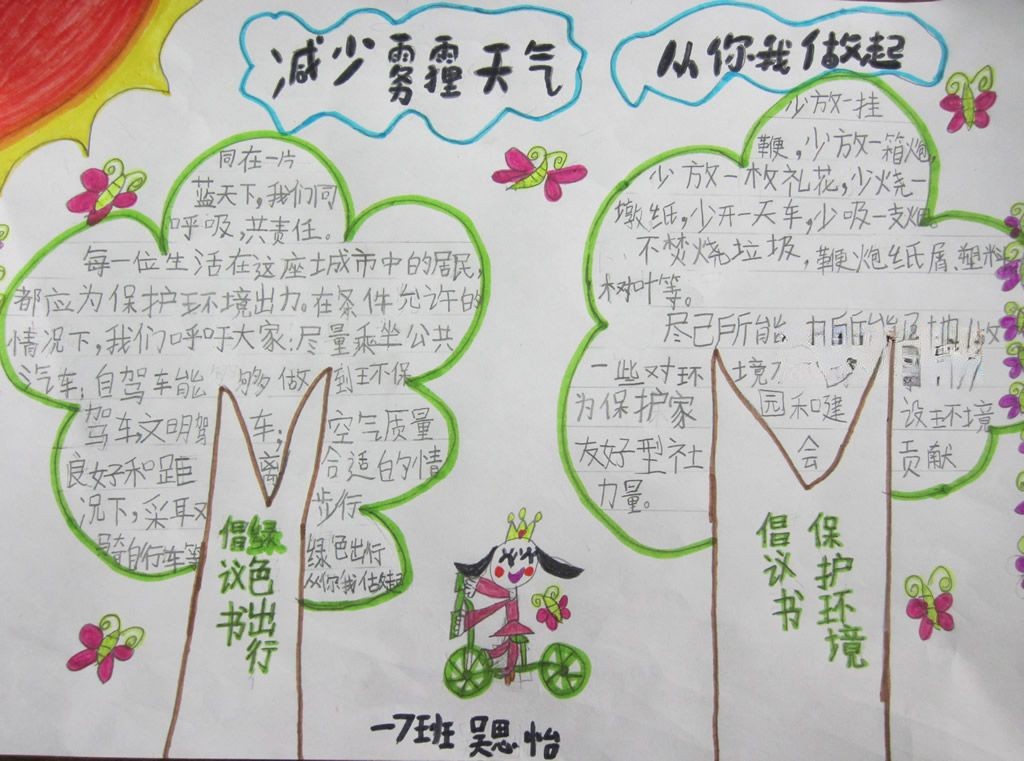 减少雾霾天气
从你我做起
同在一片
蓝天下,我们同
呼吸,共责任。
每一位生活在这座城市中的居民,
都应为保护环境出力。在条件允许的
情况下,我们呼吁大家:尽量乘坐公共
汽车;自驾车能够做到环保
驾车,文明驾车;空气质量
良好和距离合适的情
况下,采取步行
骑自行车等
绿色出行
从你我做起
绿色出行
倡议书
少放一挂
鞭,少放一箱炮,
少放一枚礼花,少烧一
墩纸,少开一天车,少吸一支烟
不焚烧垃圾,鞭炮纸屑、塑料
树叶等。
尽己所能
一些对环境
为保护家园和建设环境
友好型社会贡献
力量。
保护环境
倡议书
一7班 吴思怡